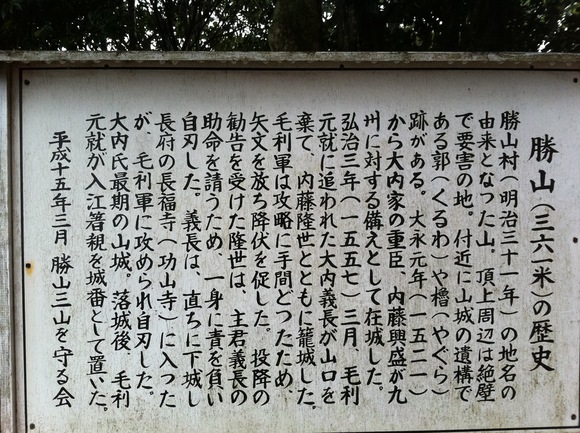 勝山(三六一米)の歴史
勝山村(明治三十一年)の地名の
由来となった山。頂上周辺は絶壁
で要害の地。付近に山城の遺構で
ある郭(くるわ)や櫓(やぐら)
跡がある。大永元年(一五二一)
から大内家の重臣、内藤興盛が九
州に対する備えとして在城した。
弘治三年(一五五七)三月、毛利
元就に追われた大内義長が山口を
棄て、内藤隆世とともに籠城した。
毛利軍は攻略に手間どつたため、
矢文を放ち降伏を促した。投降の
勧告を受けた隆世は、主君義長の
助命を請うため、一身に責を負い
自刃した。義長は、直ちに下城し
長府の長福寺(功山寺)に入った
が、毛利軍に攻められ自刃した。
大内氏最期の山城。落城後、毛利
元就が入江箸親を城番として置いた。
平成十五年三月 勝山三山を守る会